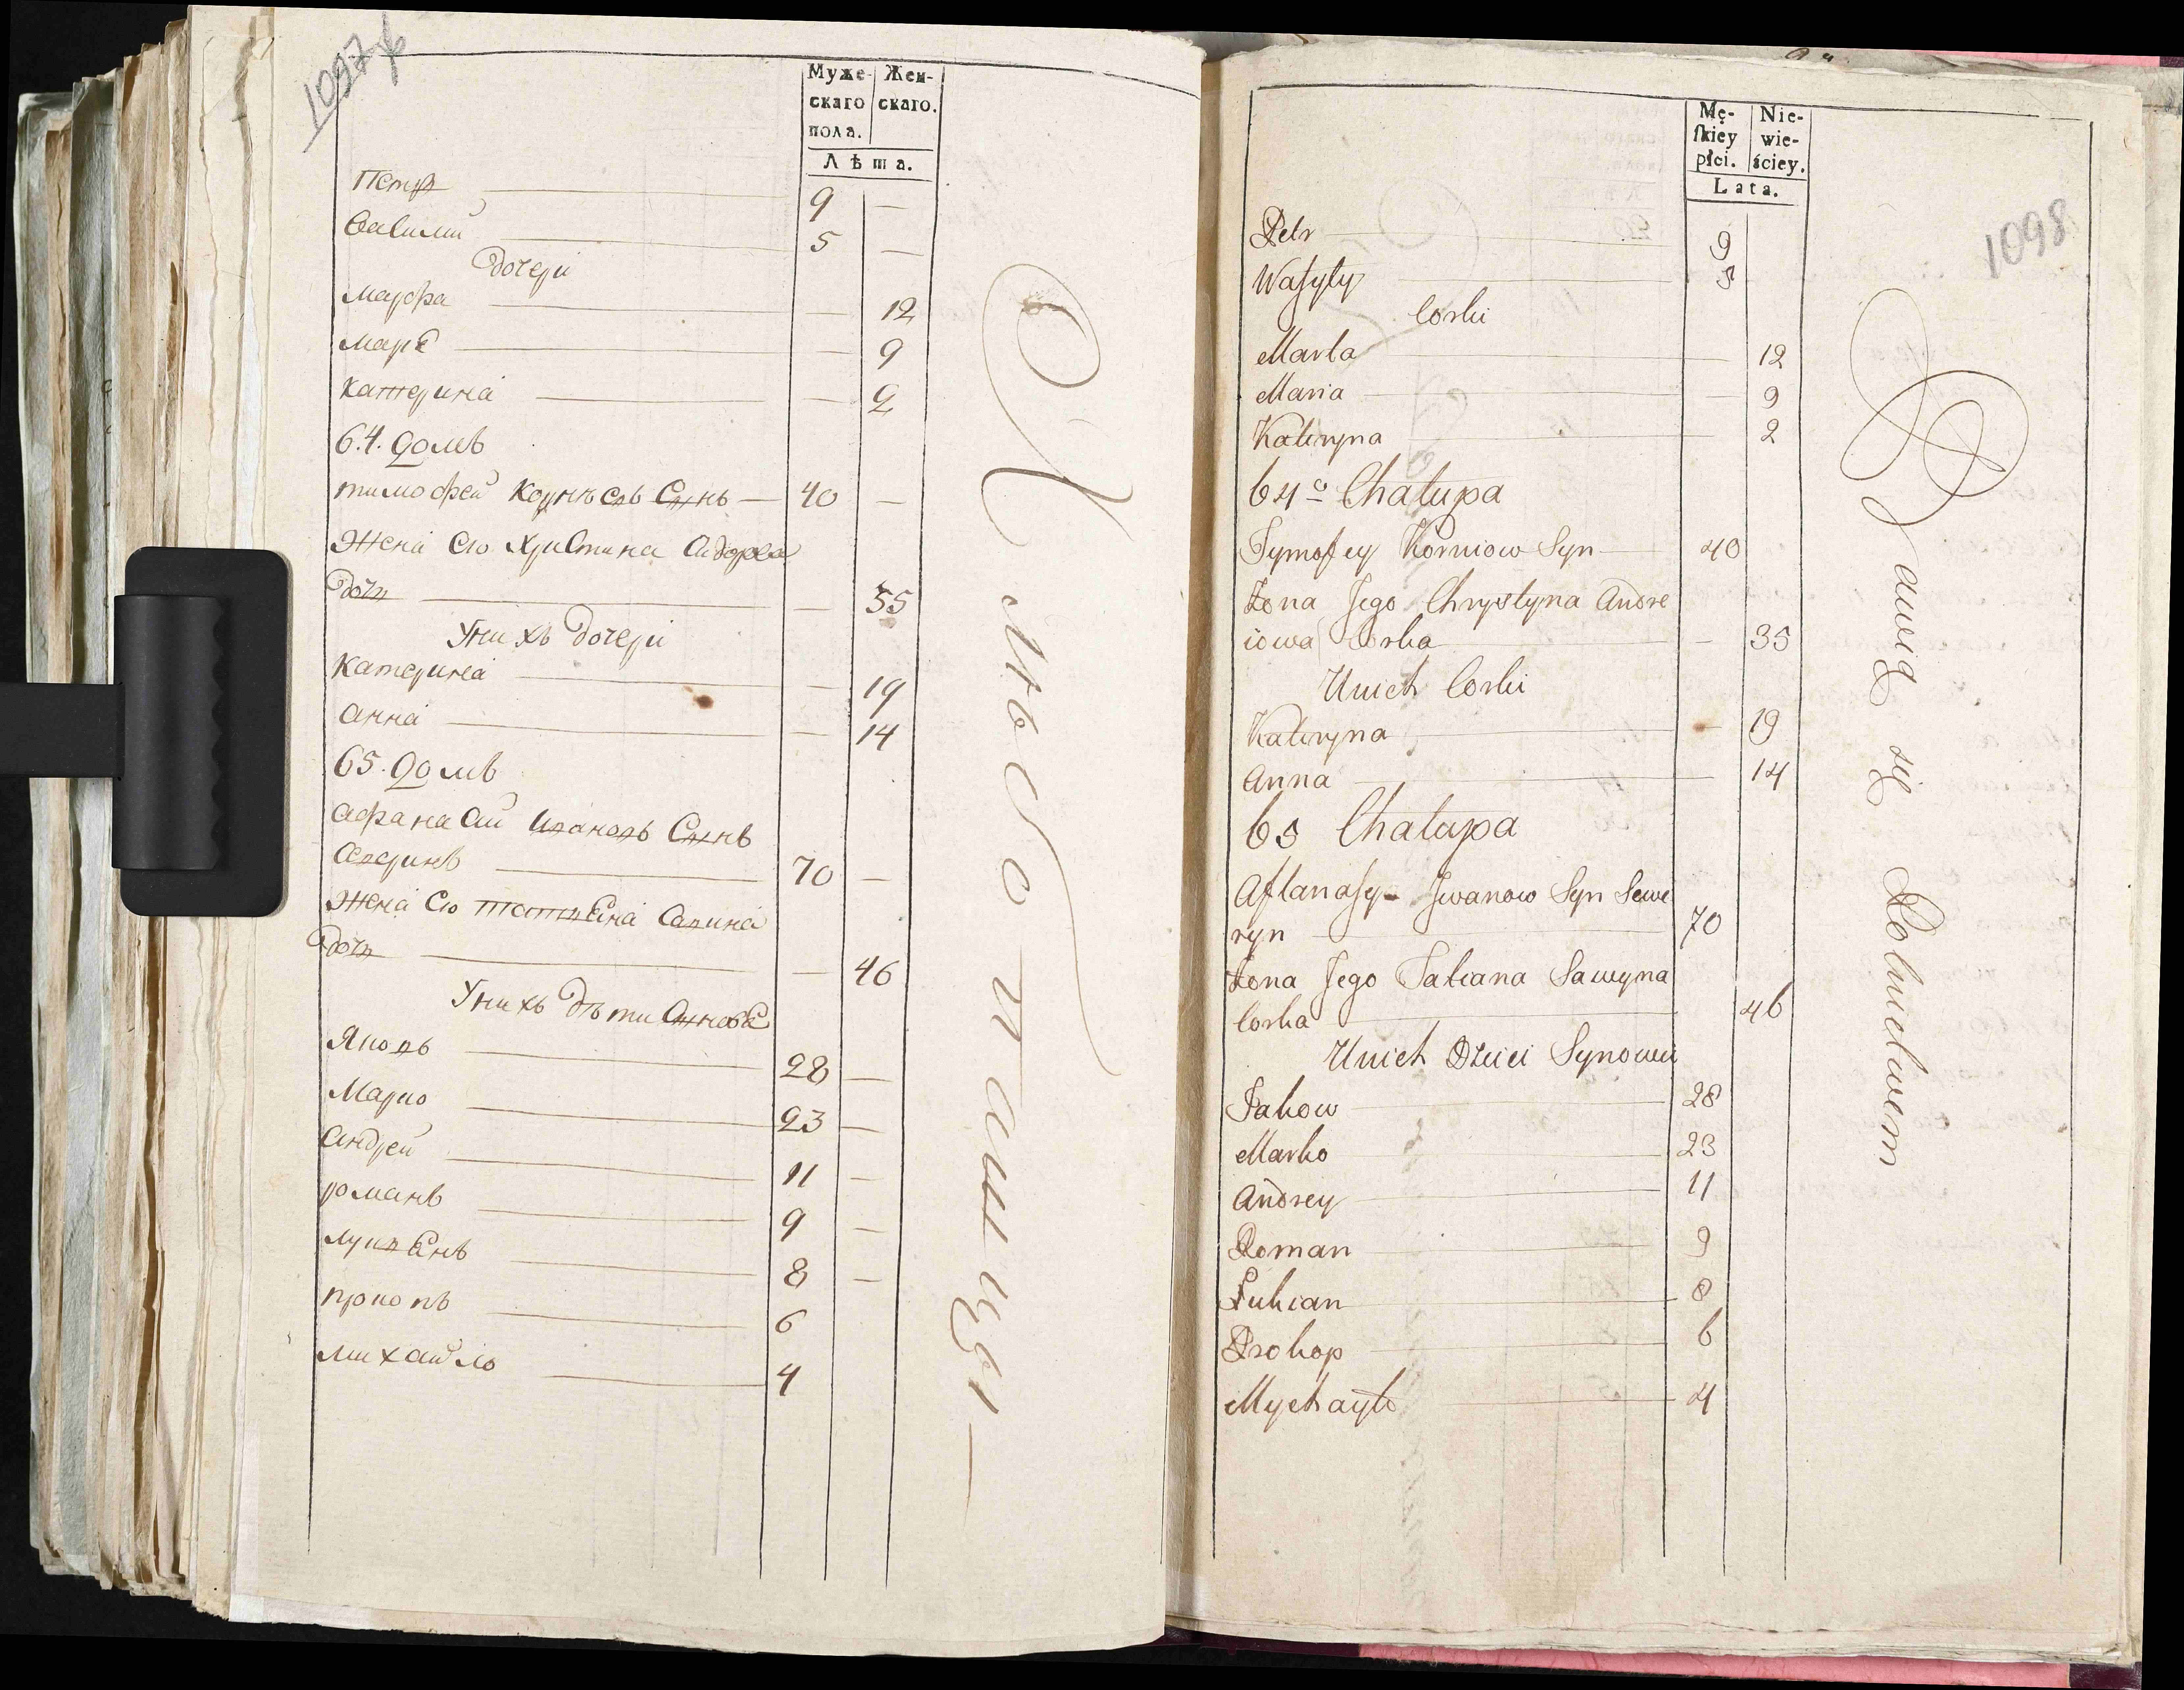 1097
Муже-
скаго
пола.
Жен-
скаго.
Лѣта.
Петръ 9 —
Василий 5 —
дочери
Марфа — 12
Маря — 9
катерина — 2
64. домъ
тимофей корнѣевъ Сынъ — 40 —
Жена Его христина
дочь — 35
У нихъ дочери
Катерина — 19
анна — 14
65. домъ
афанасий ивановъ Сынъ
70 —
Жена Его Савина
дочь — 46
У нихъ дѣти Сыновя
Яковъ 28 —
Марко 23 —
андрей 11 —
романъ 9 —
лукянъ 8 —
прокопъ 6
михайло 4
Хлѣбопашцы —
1098
Mę-
ſkiey
płci.
Nie-
wie-
ściey.
Lata.
Petr 9
Wasyly 5
Corki
Marta 12
Maria 9
Kateryna 2
64o Chałupa
Tymofey Korniow Syn 40
Żona Jego Chrystyna Andre
iowa Corka — 35
Unich Corki
Kateryna — 19
Anna 14
65 Chałupa
Aftanasy Jwanow Syn Sewe
ryn 70
Żona Jego Tatiana Sawyna
Corka 46
Unich Dzieci Synowie
Jakow 28
Marko 23
Andrey 11
Roman 9
Łukian 8
Prokop 6
Mychayło 4
Bawią się Rolnictwem